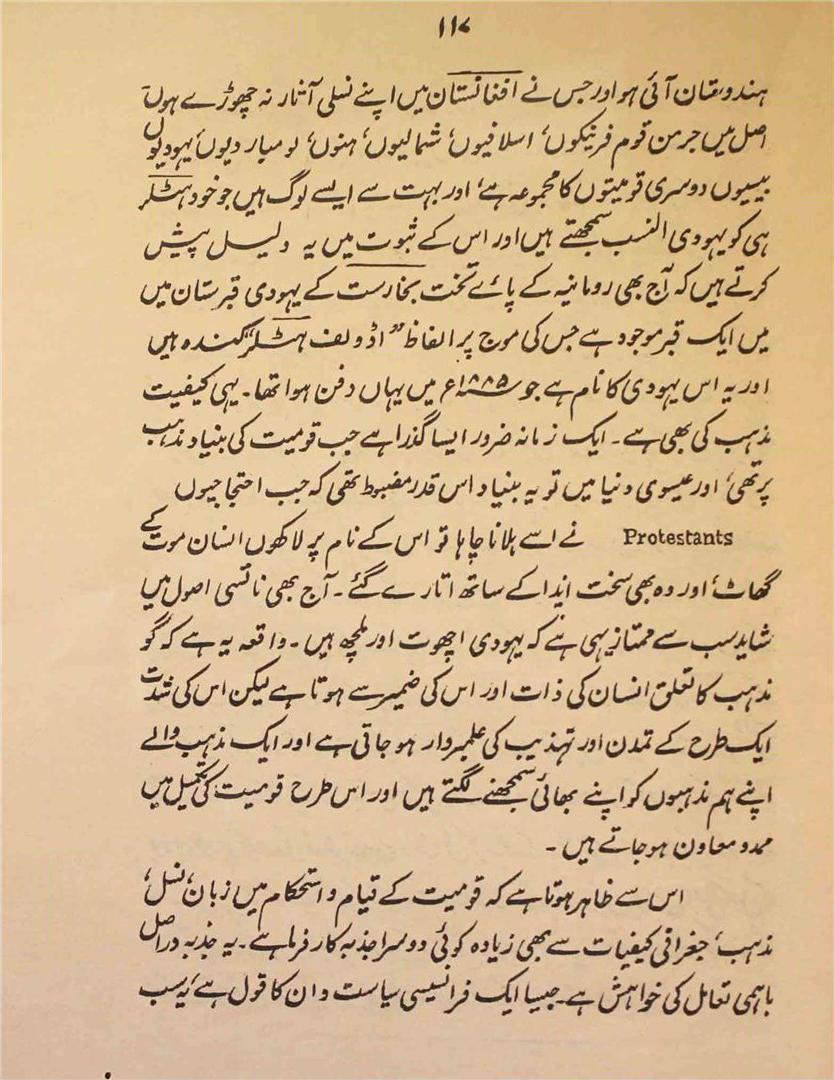 ۱۱۷
ہندوستان آئی ہو اور جس نے افغانستان میں اپنے نسلی آثار نہ چھوڑے ہوں
اصل میں جرمن قوم فرنیکوں، اسلافیوں، شمالیوں، ہنوں، لومباردیوں، یہودیوں
بیسیوں دوسری قومیتوں کا مجموعہ ہے، اور بہت سے ایسے لوگ ہیں جو خود ہٹلر
ہی کو یہودی النسب سمجھتے ہیں اور اس کے ثبوت میں یہ دلیل پیش
کرتے ہیں کہ آج بھی رومانیہ کے پائے تخت بخارست کے یہودی قبرستان میں
میں ایک قبر موجود ہے جس کی موج پر الفاظ ”اڈولف ہٹلر“ کندہ ہیں
اور یہ اس یہودی کا نام ہے جو ۱۸۸۵ء میں یہاں دفن ہوا تھا۔ یہی کیفیت
مذہب کی بھی ہے۔ ایک زمانہ ضرور ایسا گذرا ہے جب قومیت کی بنیاد مذہب
پر تھی، اور عیسوی دنیا میں تو یہ بنیاد اس قدر مضبوط تھی کہ جب احتجاجیوں
Protestants نے اسے ہلانا چاہا تو اس کے نام پر لاکھوں انسان موت کے
گھاٹ، اور وہ بھی سخت ایذا کے ساتھ اتارے گئے۔ آج بھی ناتسی اصول میں
شاید سب سے ممتاز یہی ہے کہ یہودی اچھوت اور ملچھ ہیں۔ واقعہ یہ ہے کہ گو
مذہب کا تعلق انسان کی ذات اور اس کی ضمیر سے ہوتا ہے لیکن اس کی شدت
ایک طرح کے تمدن اور تہذیب کی علمبردار ہو جاتی ہے اور ایک مذہب والے
اپنے ہم مذہبوں کو اپنے بھائی سمجھنے لگتے ہیں اور اس طرح قومیت کی تکمیل میں
ممد و معاون ہو جاتے ہیں۔
اس سے ظاہر ہوتا ہے کہ قومیت کے قیام و استحکام میں زبان، نسل،
مذہب، جغرافی کیفیات سے بھی زیادہ کوئی دوسرا جذبہ کارفرما ہے۔ یہ جذبہ دراصل
باہمی تعامل کی خواہش ہے۔ جیسا ایک فرانسیسی سیاست دان کا قول ہے، یہ سب